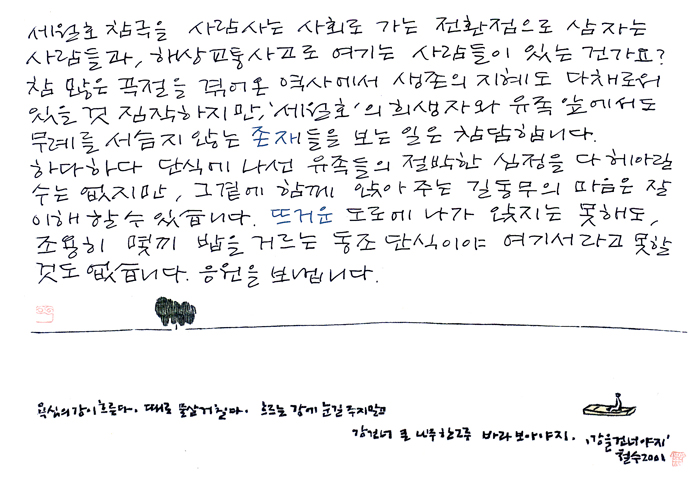 세월호 참극을 사람사는 사회로 가는 전환점으로 삼자는
사람들과, 해상교통사고로 여기는 사람들이 있는 건가요?
참 많은 곡절을 겪어온 역사에서 생존의 지혜도 다채로워
있을 것 짐작하지만, '세월호'의 희생자와 유족 앞에서도
무례를 서슴지 않는 존재들을 보는 일은 참담합니다.
하다하다 단식에 나선 유족들의 절박한 심정을 다 헤아릴
수는 없지만, 그곁에 함께 앉아 주는 길동무의 마음은 잘
이해 할 수 있습니다. 뜨거운 도로에 나가 앉지는 못해도,
조용히 몇끼 밥을 거르는 동조 단식이야 여기서라고 못할
것도 없습니다. 응원을 보냅니다.
욕심의 강이 흐른다. 때로 물살 거칠다. 흐르는 강에 눈길 주지말고
강건너 바라보아야지. '강을건너야지'
철수2001